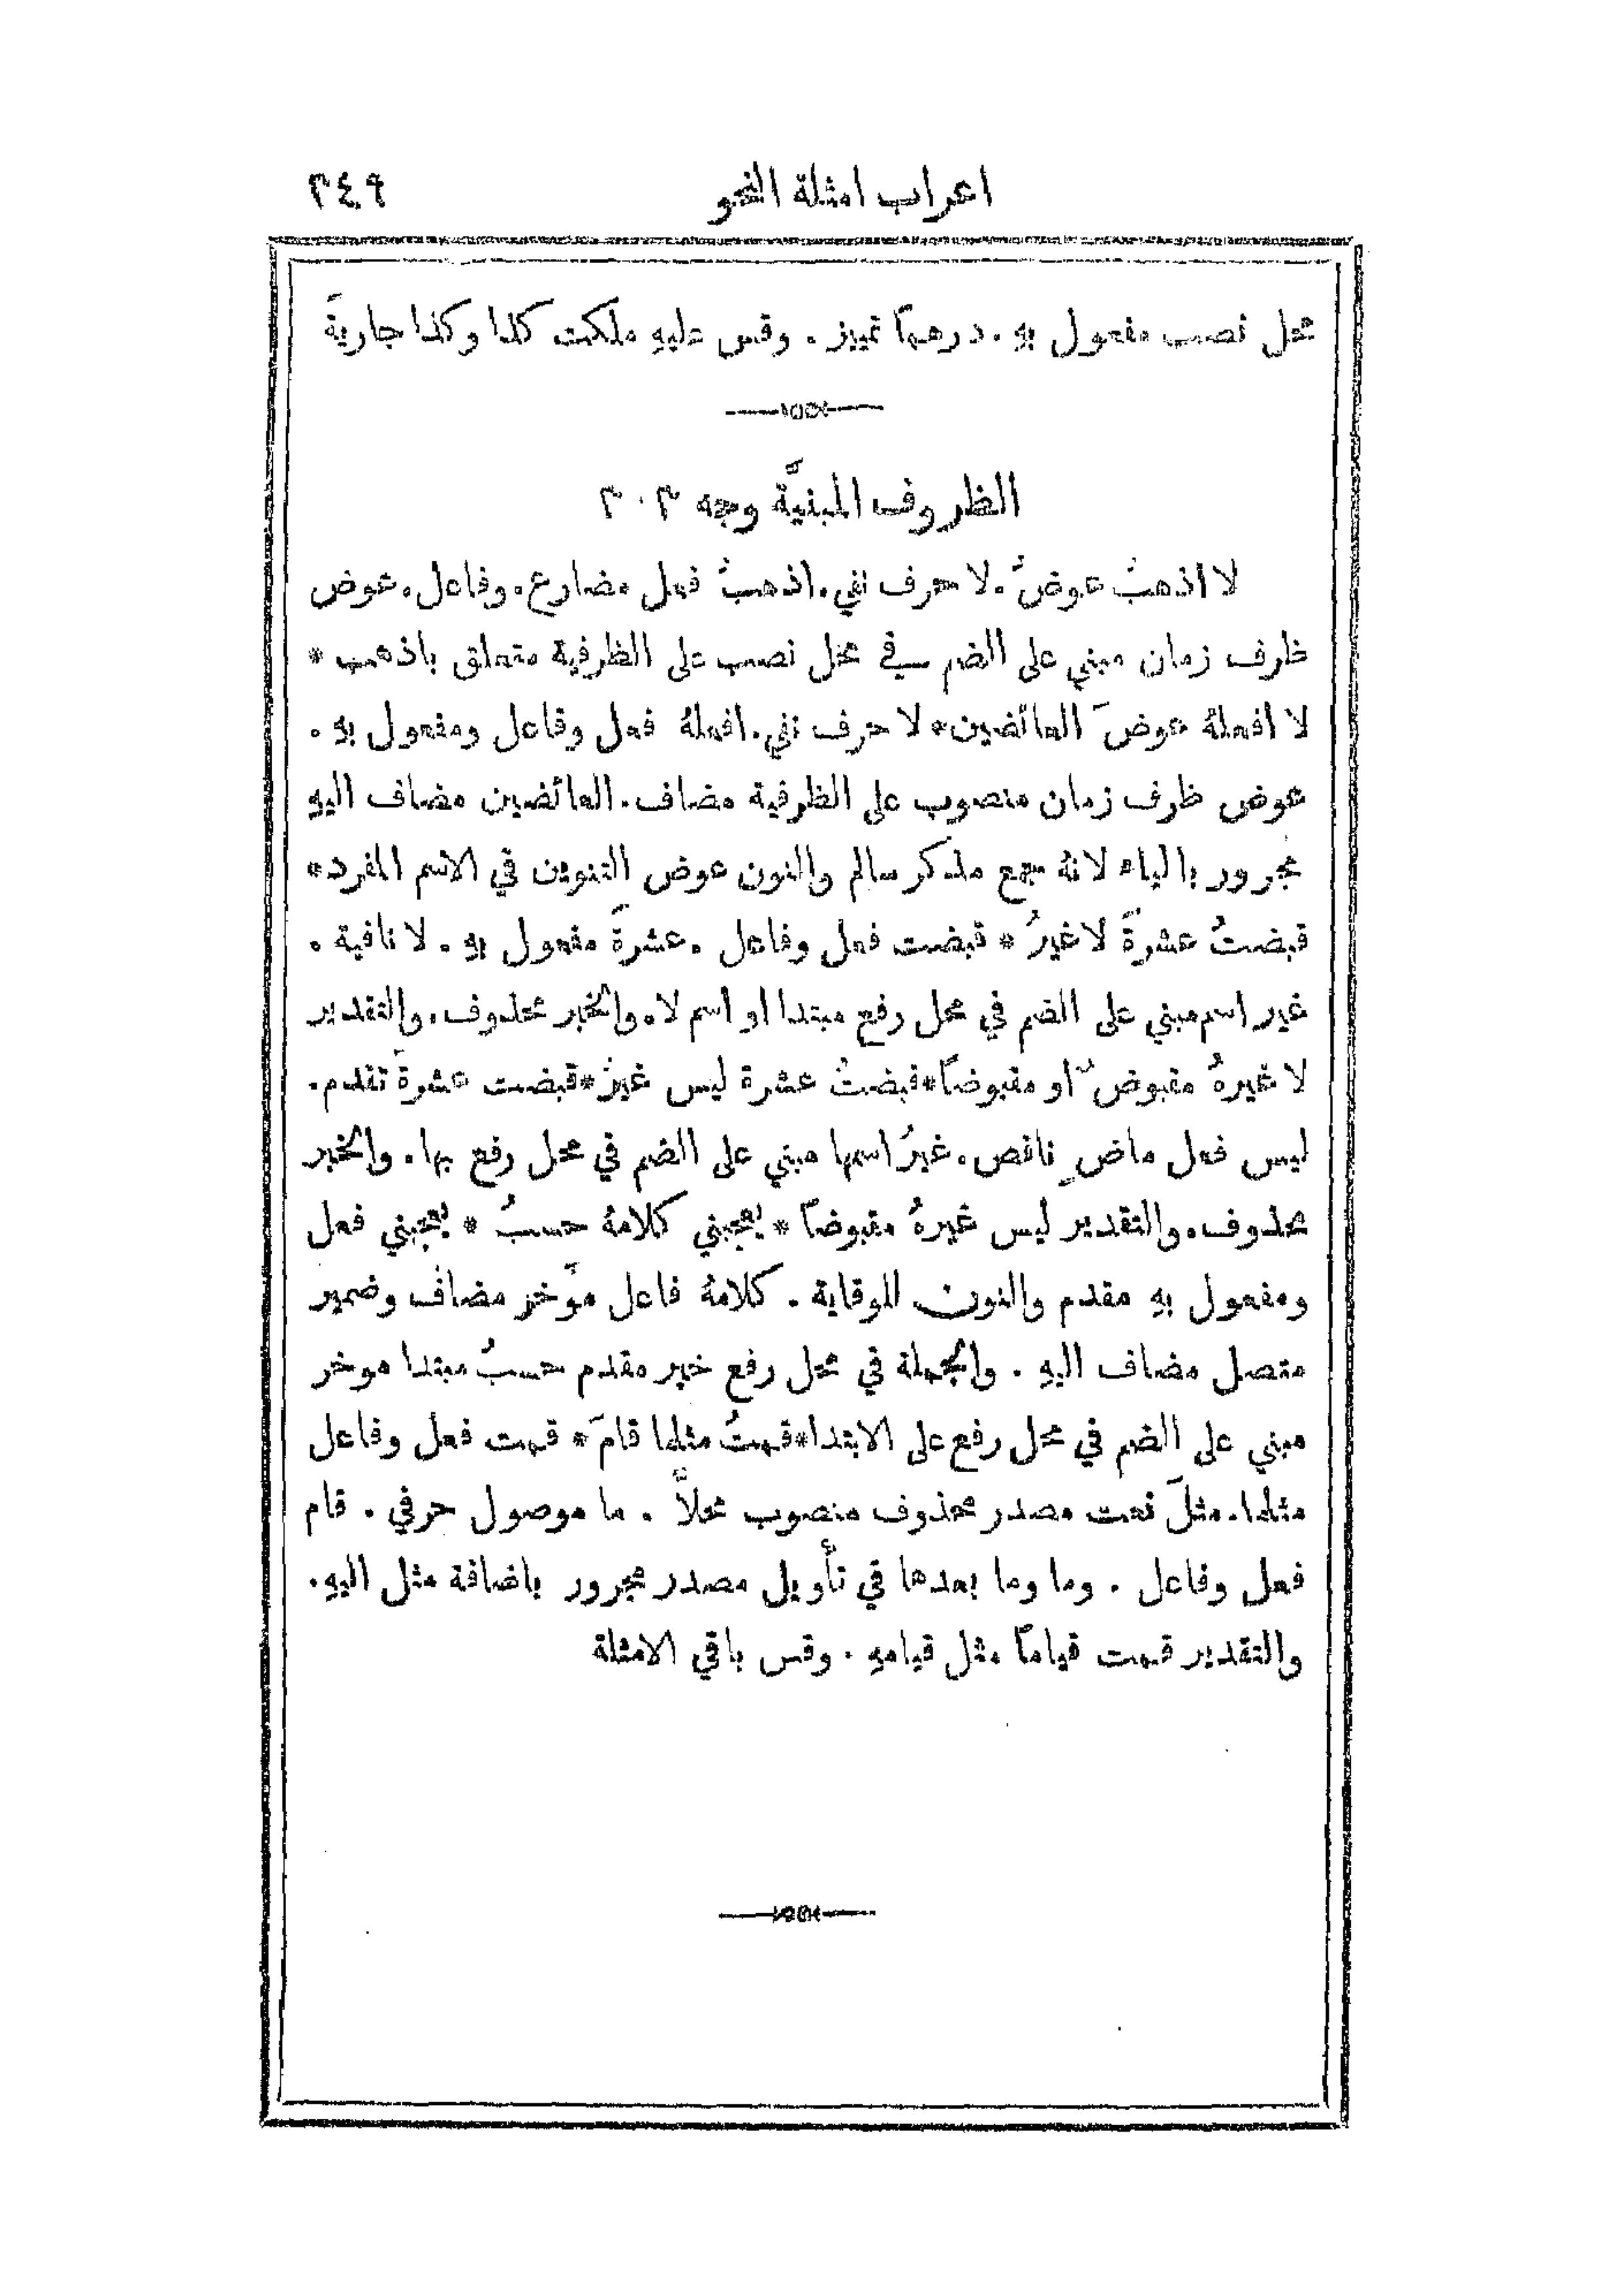 اعراب امثلة النحو ٣٤٩
محل نصب مفعول بهِ . درهمًا تمييز . وقس عليهِ ملكت كذا وكذا جاريةً
الظروف المبنيَّة وجه ٣٠٣
لا اذهبُ عوضُ . لا حرف نفي . اذهبُ فعل مضارع . وفاعل . عوض
ظرف زمان مبني على الضم في محل نصب على الظرفية متعلق باذهب *
لا افعلهُ عوضَ العائضين * لا حرف نفي . افعلهُ فعل وفاعل ومفعول بهِ .
عوض ظرف زمان منصوب على الظرفية مضاف . العائضين مضاف اليهِ
مجرور بالياء لانهُ جمع مذكر سالم والنون عوض التنوين في الاسم المفرد *
قبضتُ عشرةً لا غيرُ * قبضت فعل وفاعل . عشرةً مفعول بهِ . لا نافية .
غير اسم مبني على الضم في محل رفع مبتدا او اسم لا . والخبر محذوف . والتقدير
لا غيرهُ مقبوضٌ او مقبوضًا * قبضتُ عشرة ليس غيرُ * قبضت عشرةً تقدم .
ليس فعل ماضٍ ناقص . غيرُ اسمها مبني على الضم في محل رفع بها . والخبر
محذوف . والتقدير ليس غيرهُ مقبوضًا * يعجبني كلامهُ حسبُ * يعجبني فعل
ومفعول بهِ مقدم والنون للوقاية . كلامهُ فاعل موَّخر مضاف وضمير
متصل مضاف اليهِ . والجملة في محل رفع خبر مقدم حسبُ مبتدا موخر
مبني على الضم في محل رفع على الابتدا * قمتُ مثلما قامَ * قمت فعل وفاعل
مثلما . مثلَ نعت مصدر محذوف منصوب محلاً . ما موصول حرفي . قام
فعل وفاعل . وما وما بعدها في تأويل مصدر مجرور باضافة مثل اليهِ .
والتقدير قمت قيامًا مثل قيامهِ . وقس باقي الامثلة